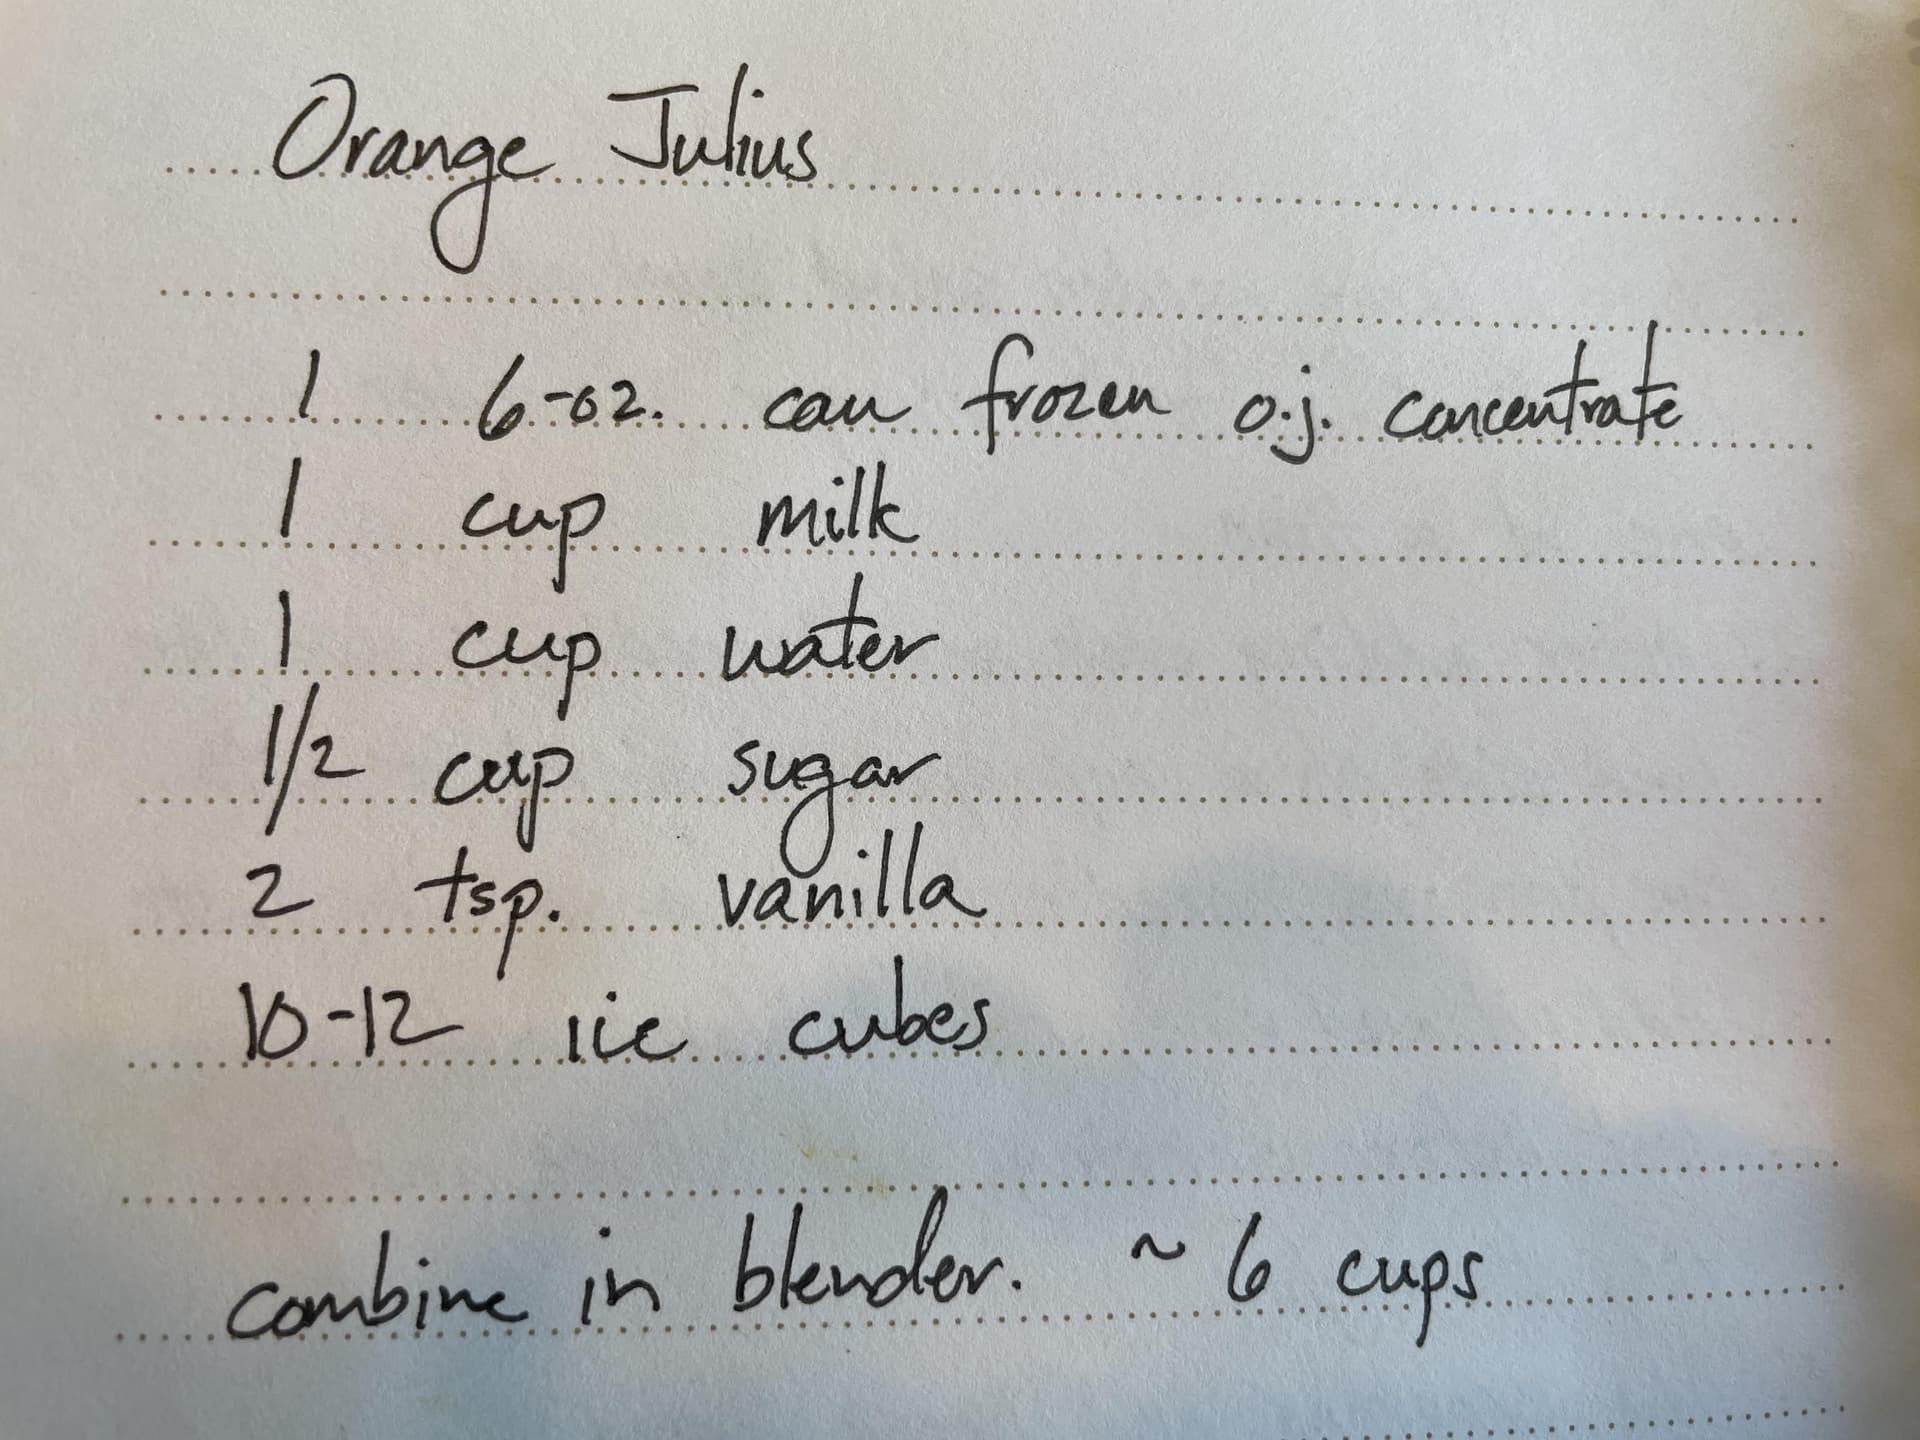 Orange Julius
1 6-oz. can frozen o.j. concentrate
1 cup milk
1 cup water
1/2 cup sugar
2 tsp. vanilla
10-12 ice cubes
combine in blender. ~ 6 cups